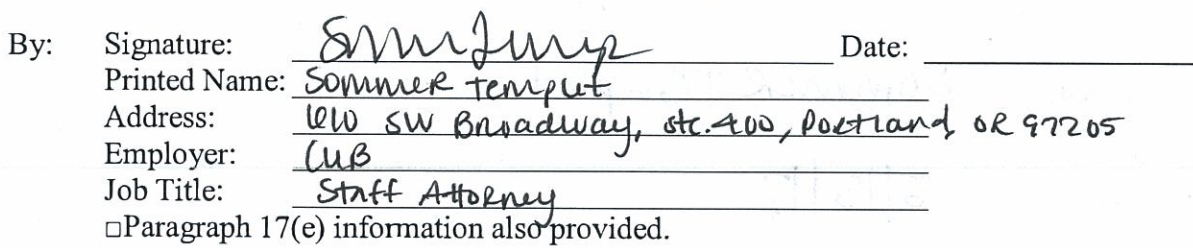 By: Signature: Date:
Printed Name: Sommer Templet
Address: 610 SW Broadway, Ste. 400, Portland, OR 97205
Employer: CUB
Job Title: Staff Attorney
□Paragraph 17(e) information also provided.